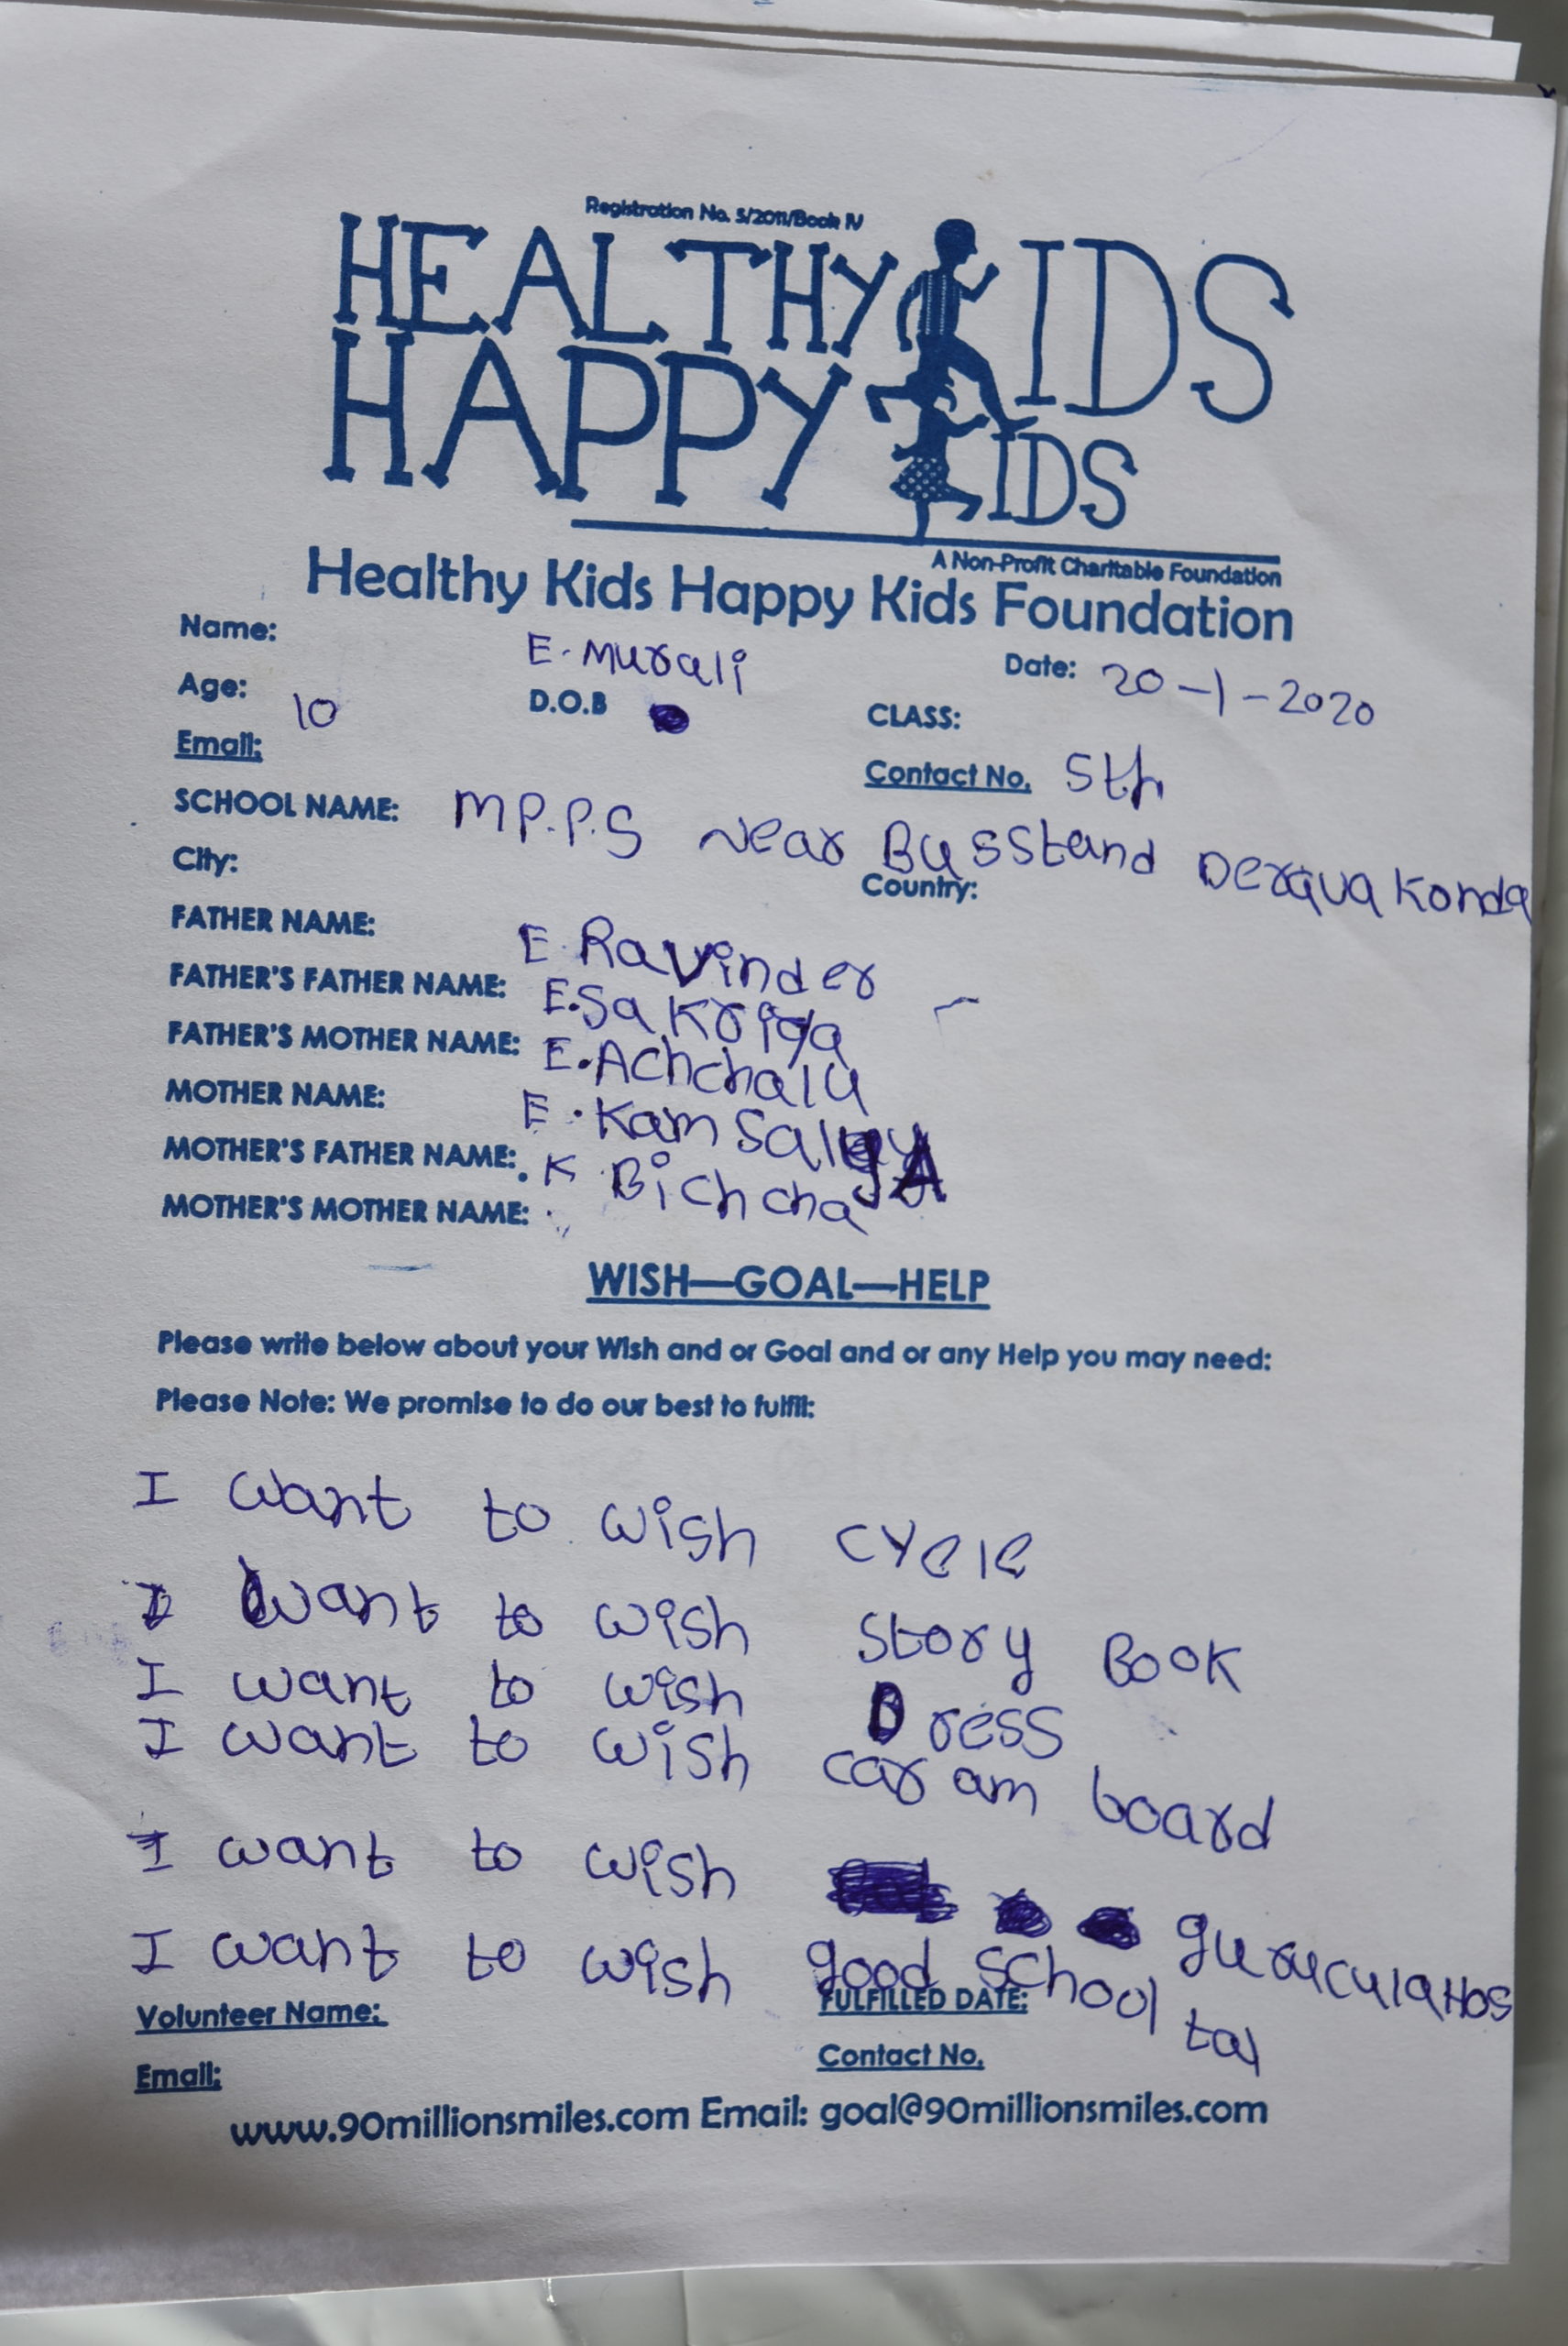 Registration No. 5/2011/Book IV
HEALTHY KIDS
HAPPY KIDS
A Non-Profit Charitable Foundation
Healthy Kids Happy Kids Foundation
Name: E. Murali Date: 20-1-2020
Age: 10 D.O.B CLASS: 5th
Email: Contact No.
SCHOOL NAME: M P.P.S Near Busstand Deravakonda
City: Country:
FATHER NAME: E. Ravinder
FATHER'S FATHER NAME: E. Sakriya
FATHER'S MOTHER NAME: E. Achchalu
MOTHER NAME: E.
MOTHER'S FATHER NAME: K Bichcha
MOTHER'S MOTHER NAME:
WISH—GOAL—HELP
Please write below about your Wish and or Goal and or any Help you may need:
Please Note: We promise to do our best to fulfil:
I want to wish cycle
I want to wish story Book
I want to wish Dress
I want to wish caram board
I want to wish guruculaHos
tal
I want to wish good school
Volunteer Name: FULFILLED DATE:
Email: Contact No.
www.90millionsmiles.com Email: goal@90millionsmiles.com